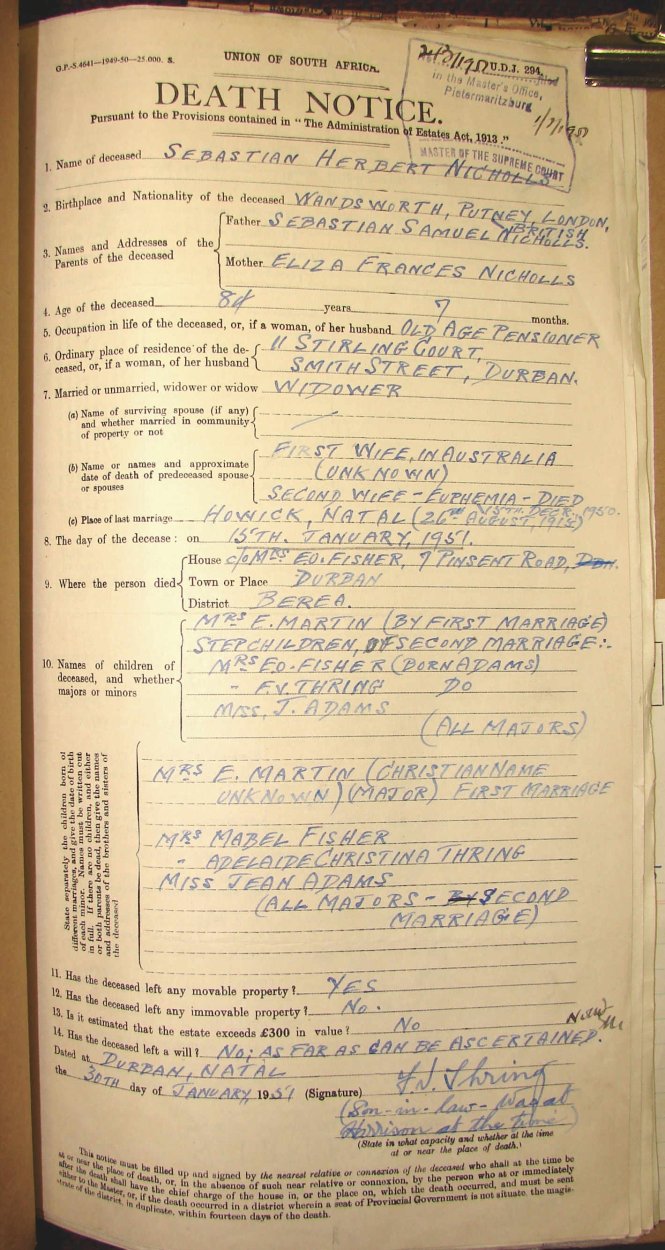 G.P.-S.4641—1949-50—25,000. S.
UNION OF SOUTH AFRICA.
U.D.J. 294.
in the Master's Office,
Pietermaritzburg
MASTER OF THE SUPREME COURT
DEATH NOTICE.
Pursuant to the Provisions contained in "The Administration of Estates Act, 1913."
1. Name of deceased SEBASTIAN HERBERT NICHOLLS
2. Birthplace and Nationality of the deceased WANDSWORTH, PUTNEY, LONDON,
BRITISH
3. Names and Addresses of the Parents of the deceased
Father SEBASTIAN SAMUEL NICHOLLS.
Mother ELIZA FRANCES NICHOLLS
4. Age of the deceased years 7 months.
5. Occupation in life of the deceased, or, if a woman, of her husband OLD AGE PENSIONER
6. Ordinary place of residence of the de- 11 STIRLING COURT,
ceased, or, if a woman, of her husband SMITH STREET, DURBAN.
7. Married or unmarried, widower or widow WIDOWER
(a) Name of surviving spouse (if any)
and whether married in community
of property or not
(b) Name or names and approximate
date of death of predeceased spouse
or spouses
FIRST WIFE, IN AUSTRALIA
(UNKNOWN)
SECOND WIFE - EUPHEMIA - DIED
15TH. DECR. 1950.
(c) Place of last marriage HOWICK, NATAL (26TH AUGUST, 1918)
8. The day of the decease: on 15TH. JANUARY, 1951.
9. Where the person died
House c/o MRS E.O. FISHER, 7 PINSENT ROAD, DBN.
Town or Place DURBAN
District BEREA.
10. Names of children of
deceased, and whether
majors or minors
MRS E. MARTIN (BY FIRST MARRIAGE)
STEPCHILDREN, OF SECOND MARRIAGE:-
MRS E.O. FISHER (BORN ADAMS)
" F.V. THRING DO
MISS, J. ADAMS
(ALL MAJORS)
State separately the children born of
different marriages, and give the date of birth
of each minor. Names must be written out
in full. If there are no children, and either
or both parents be dead, then give the names
and addresses of the brothers and sisters of
the deceased
MRS E. MARTIN (CHRISTIAN NAME
UNKNOWN) (MAJOR) FIRST MARRIAGE
MRS MABEL FISHER
" ADELAIDE CHRISTINA THRING
MISS JEAN ADAMS
(ALL MAJORS - BY SECOND
MARRIAGE)
11. Has the deceased left any movable property? YES
12. Has the deceased left any immovable property? No.
13. Is it estimated that the estate exceeds £300 in value? No
14. Has the deceased left a will? NO; AS FAR AS CAN BE ASCERTAINED.
Dated at DURBAN, NATAL
the 30TH day of JANUARY, 1951 (Signature) Thring
(Son-in-law- Was at
at the time)
(State in what capacity and whether at the time
at or near the place of death.)
This notice must be filled up and signed by the nearest relative or connexion of the deceased who shall at the time be
at or near the place of death, or, in the absence of such near relative or connexion, by the person who at or immediately
after the death shall have the chief charge of the house in, or the place on, which the death occurred, and must be sent
either to the Master, or, if the death occurred in a district wherein a seat of Provincial Government is not situate, the magis-
trate of the district, in duplicate, within fourteen days of the death.